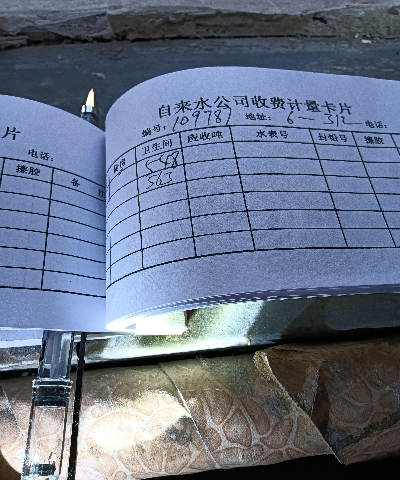 片
电话：
擦胶 备
自来水公司收费计量卡片
编号：109781 地址：6-312 电话：
厨房 卫生间 应收吨 水表号 封铅号 擦胶
548
563